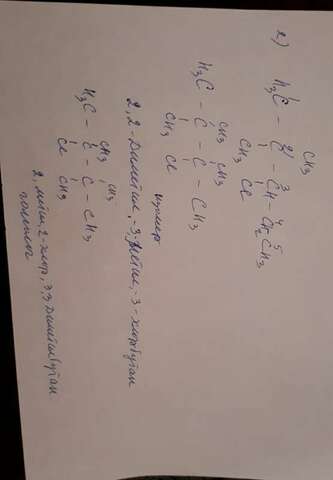 2)
CH3
H3C - C - CH - CH2CH3
1 2 3 4 5
CH3 Cl
CH3 CH3
H3C - C - C - CH3
CH3 Cl
изомер
2,2-Диметил,-3-Метил,-3-хлорбутан
CH3 CH3
H3C - C - C - CH3
Cl CH3
2,метил,2-хлор,3,3 диметилбутан